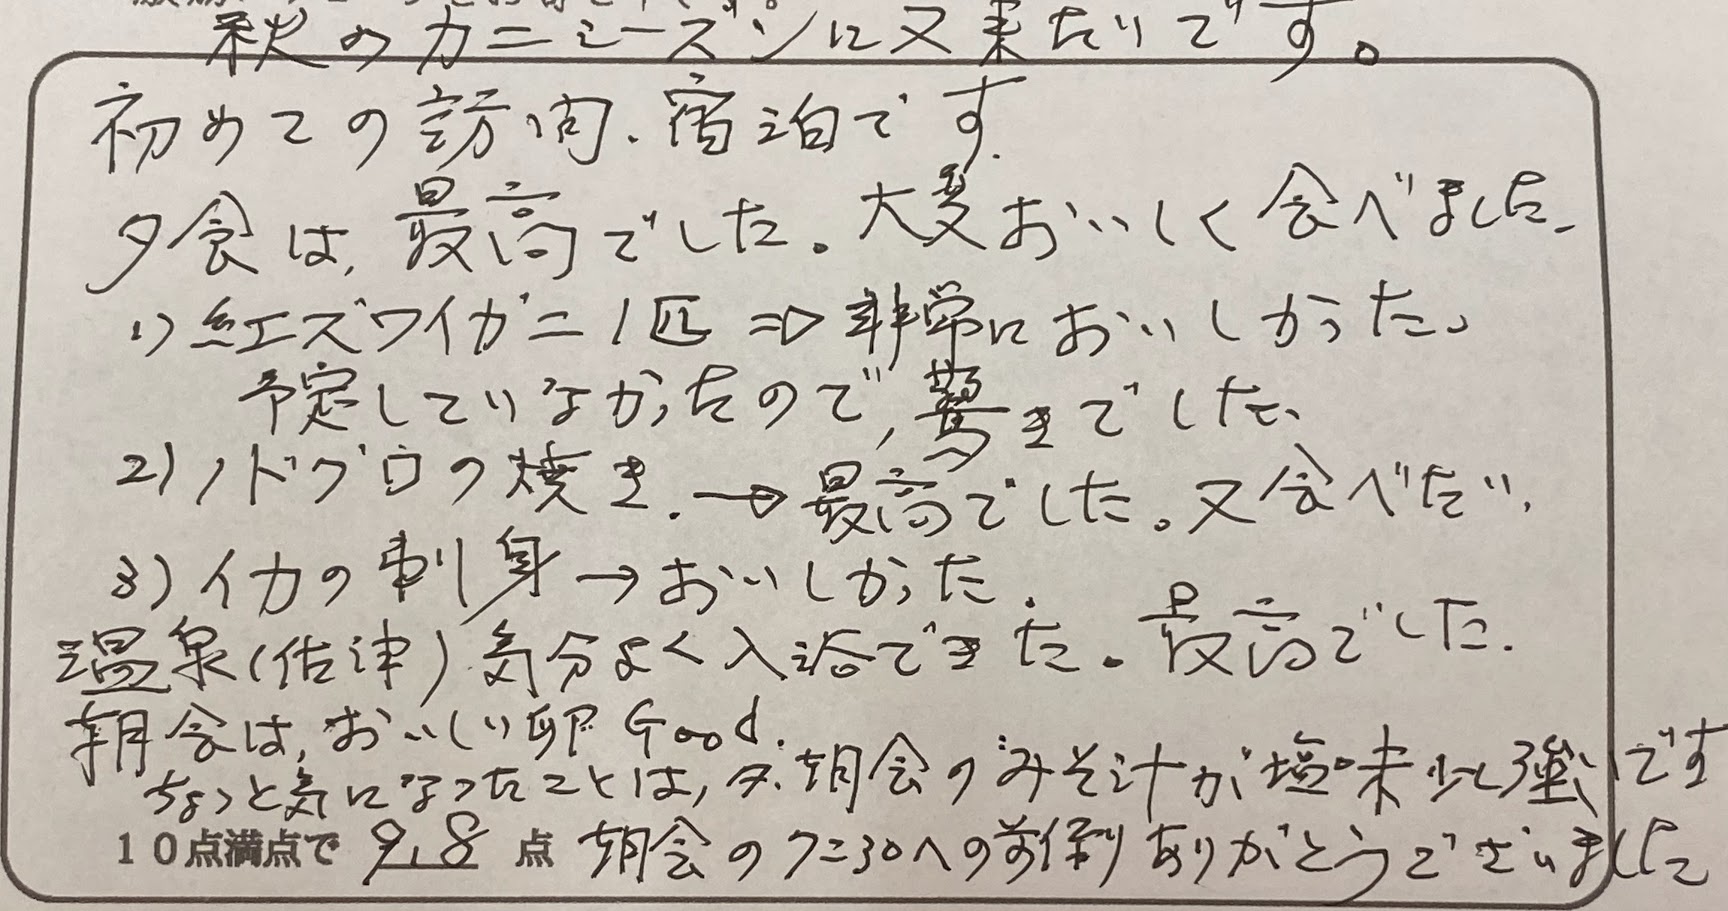 秋のカニシーズンに又来たいです。
初めての訪問、宿泊です.
夕食は、最高でした。大変おいしく食べました.
1) 紅ズワイガニ1匹 ⇒ 非常においしかった。
予定していなかったので、驚きでした、
2) ノドグロの焼き. → 最高でした。又食べたい.
3) イカの刺身 → おいしかった.
温泉(佐津) 気分よく入浴できた。最高でした.
朝食は、おいしい卵Good.
ちょっと気になったことは、夕.朝食のみそ汁が塩味少し強いです
10点満点で 9.8 点 朝食の7:30への前倒ありがとうございました